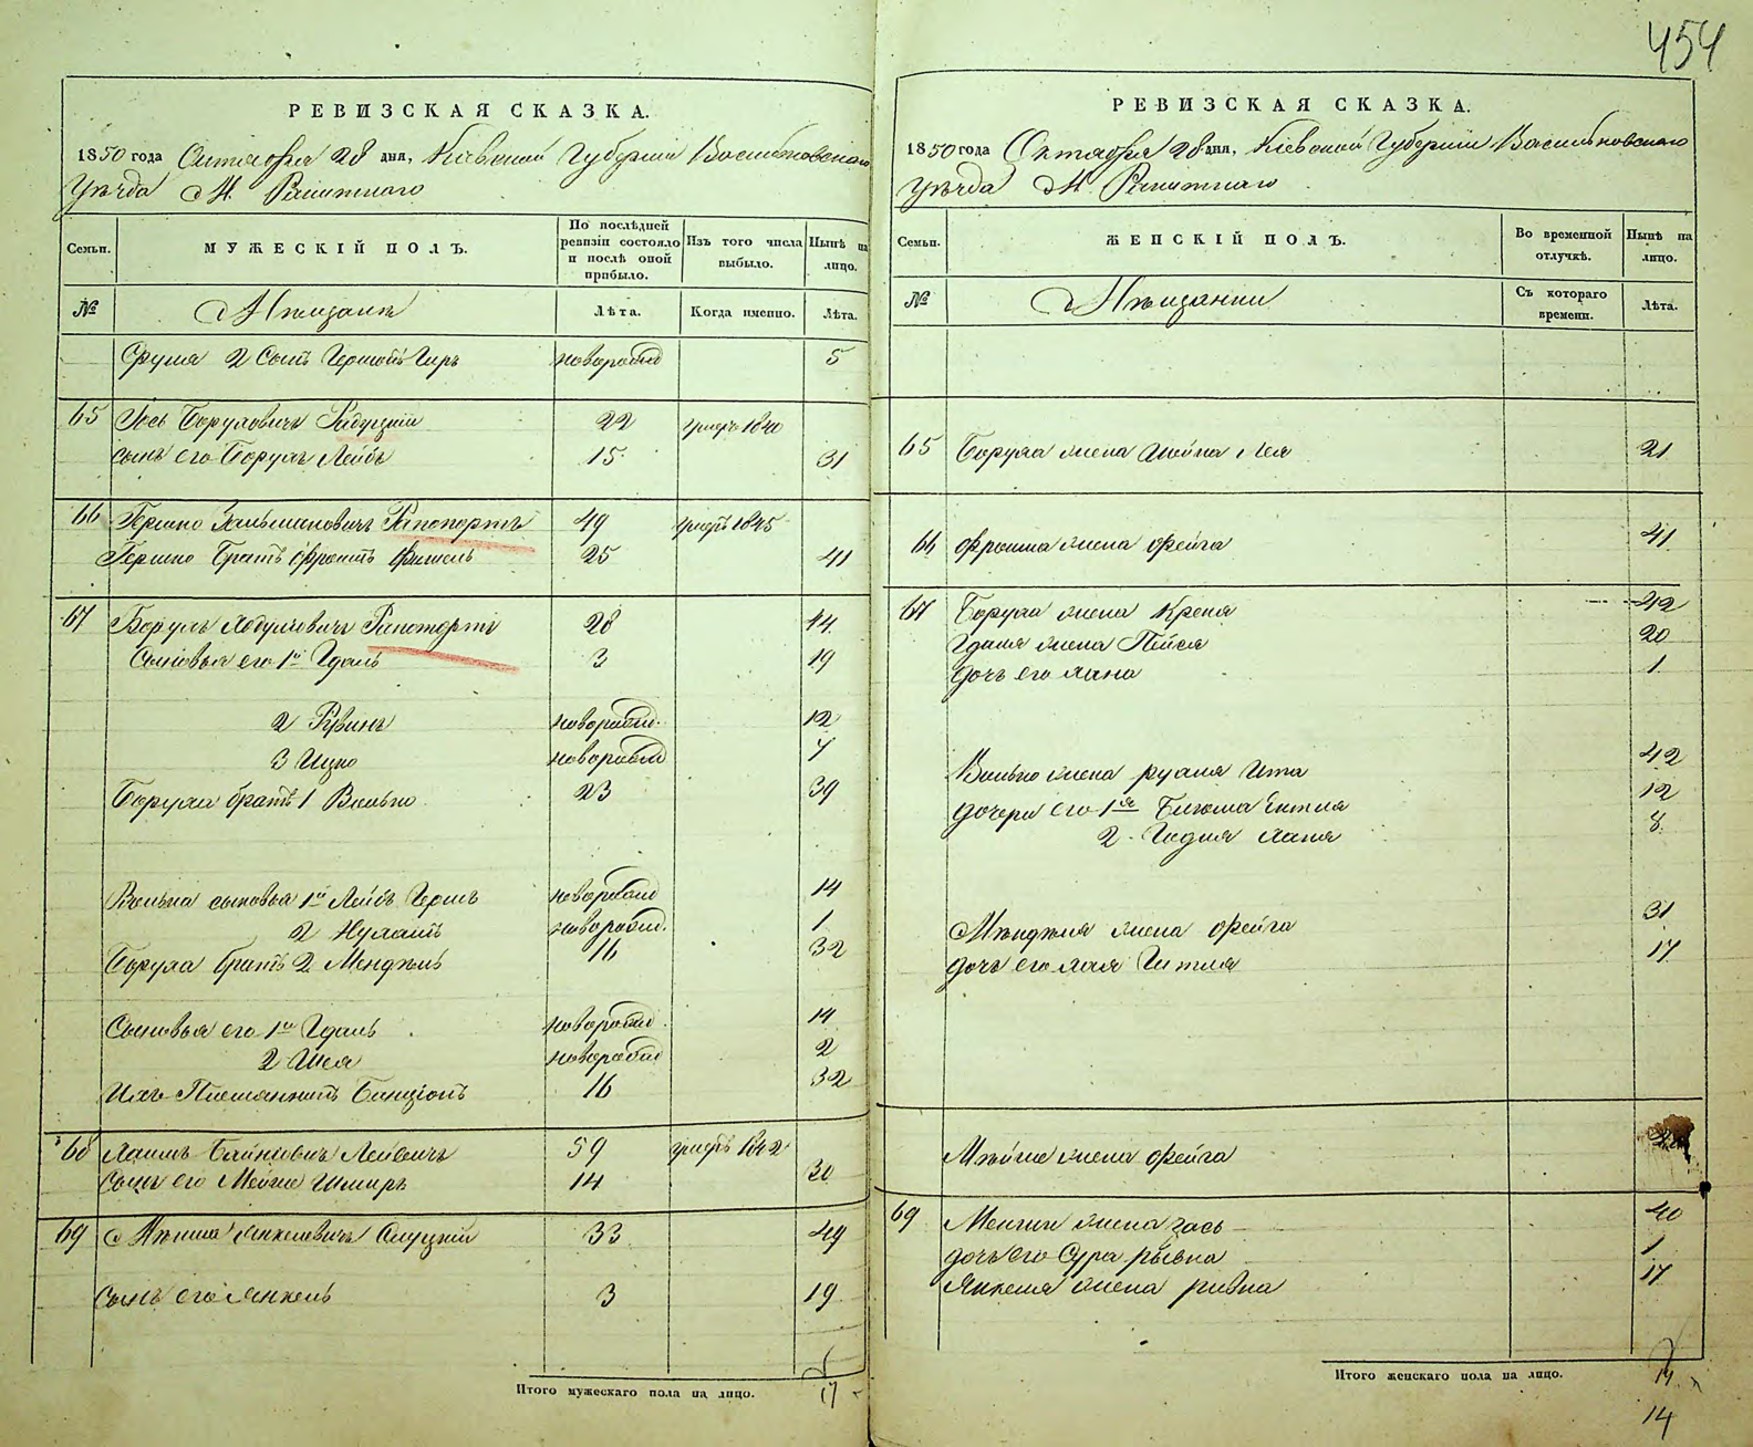 454
РЕВИЗСКАЯ СКАЗКА.
1850 года Октября 28 дня, Кіевской Губерніи Васильковского
Уѣзда М.
Семьи.
МУЖЕСКІЙ ПОЛЪ.
По послѣдней ревизіи состояло и послѣ оной прибыло.
Изъ того числа выбыло.
Нынѣ на лицо.
№
Мѣщане
Лѣта.
Когда именно.
Лѣта.
Сруля 2 Сынъ новорожд 5
65 Іось Боруховичъ 22 умеръ 1840
сынъ его Борухъ Лейбъ 15 31
66 Гершко Зельмановичъ Рапопортъ 49 умеръ 1845
Гершко братъ Фроимъ Фишель 25 41
67 Борухъ Рапопортъ 28 44
Сыновья его 1й Гдаль 3 19
2 Рувинъ новорожд. 12
3 Ицко новорожд 7
Боруха братъ 1 Волько 23 39
Волька сыновья 1й Лейбъ Гершъ новорожд 14
2 новорожд. 1
Боруха братъ 2 Мендель 16 32
Сыновья его 1й Гдаль новорожд. 14
2 Шая новорожд 2
Ихъ Племянникъ Бенціонъ 16 32
68 Хаимъ 59 умеръ 1842
Сынъ его Мойше Шмиръ 14 30
69 Янкелевичъ Слуцкій 33 49
Сынъ его Янкель 3 19
Итого мужескаго пола на лицо. 17
РЕВИЗСКАЯ СКАЗКА.
1850 года Октября 28 дня, Кіевской Губерніи Васильковского
Уѣзда М.
Семьи.
ЖЕНСКІЙ ПОЛЪ.
Во временной отлучкѣ.
Нынѣ на лицо.
№
Мѣщанки
Съ котораго времени.
Лѣта.
65 Боруха жена Лея 21
66 Фроима жена Фейга 41
67 Боруха жена Крейя 42
Гдаля жена Пейся 20
дочь его Хана 1
Волько жена Рухля Ита 42
дочери его 1я Ентля 12
2 Хана 8
Менделя жена Фейга 31
дочь его Хая Гитля 17
Мойше жена Фейга
69 жена 40
дочь его Сура Рывка 1
Янкеля жена Ривка 17
Итого женскаго пола на лицо. 14
14